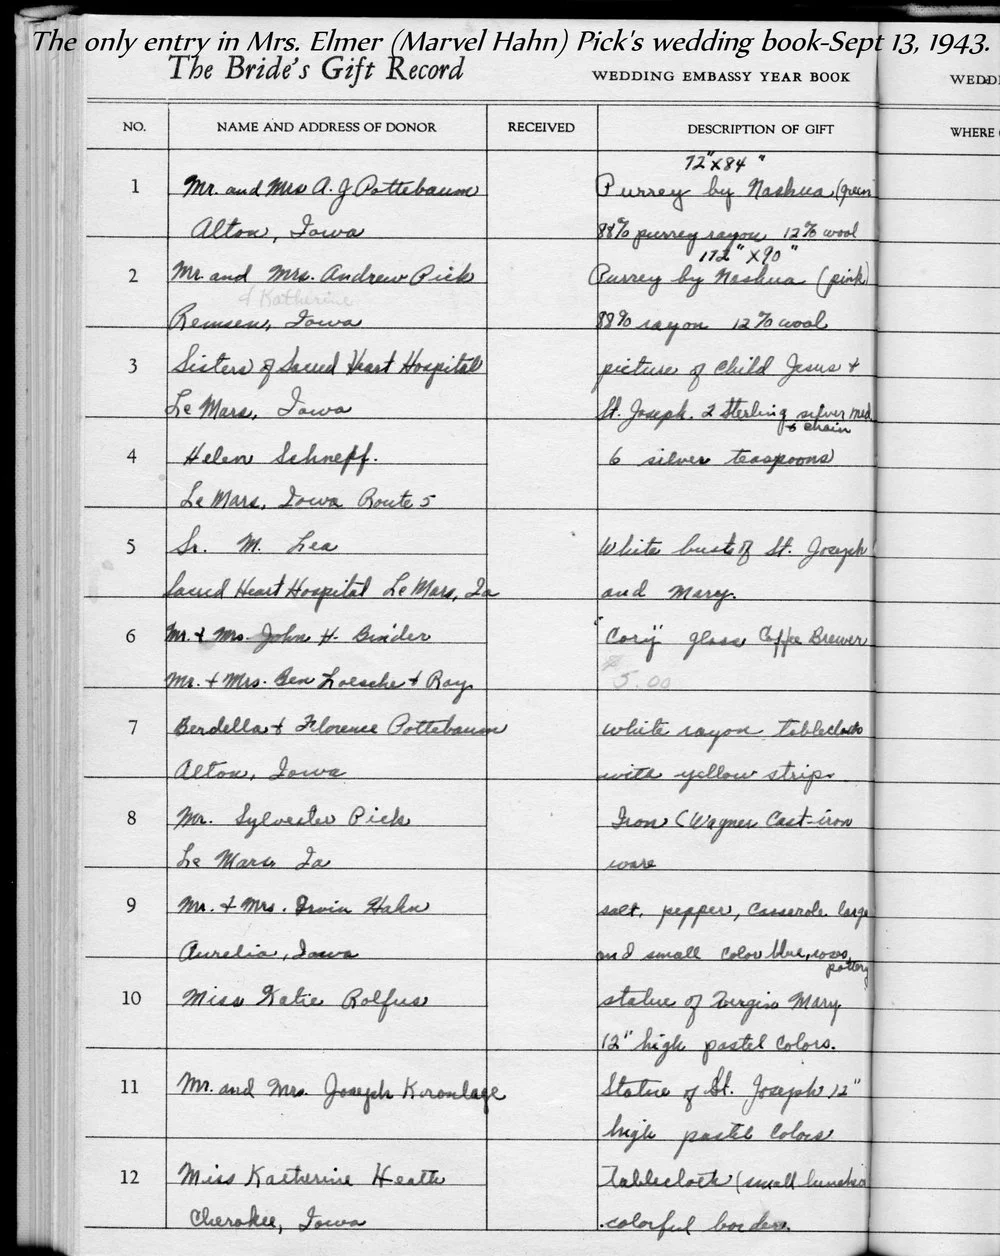 The only entry in Mrs. Elmer (Marvel Hahn) Pick's wedding book-Sept 13, 1943.
The Bride's Gift Record
WEDDING EMBASSY YEAR BOOK
WEDDI
NO.
NAME AND ADDRESS OF DONOR
RECEIVED
DESCRIPTION OF GIFT
WHERE
72" x 84"
1
Mr. and Mrs A. J Pottebaum
Purrey by Nashua (green
Alton, Iowa
88% purrey rayon 12% wool
72" x 90"
2
Mr and Mrs. Andrew Pick
Purrey by Nashua (pink)
& Katherine
Remsen, Iowa
88% rayon 12% wool
3
Sisters of Sacred Heart Hospital
picture of Child Jesus +
Le Mars, Iowa
St. Joseph. 2 Sterling silver med
& chain
4
Helen Schneff.
6 silver teaspoons
Le Mars, Iowa Route 5
5
Sr. M. Lea
White bust of St. Joseph
Sacred Heart Hospital Le Mars, Ia
and Mary.
6
Mr. + Mrs. John H. Binder
"Cory" glass Coffee Brewer
Mr. + Mrs. Ben Loesche + Ray
$5.00
7
Berdella + Florence Pottebaum
white rayon tablecloth
Alton, Iowa
with yellow strips
8
Mr. Sylvester Pick
Iron (Wagner Cast-iron
Le Mars, Ia
ware
9
Mr. + Mrs. Irvin Hahn
salt, pepper, casserole large
Aurelia, Iowa
and small color blue, rose,
pottery
10
Miss Katie Rolfus
statue of Virgin Mary
12" high pastel colors.
11
Mr. and Mrs. Joseph Kronlage
Statue of St. Joseph 12"
high pastel colors
12
Miss Katherine Heath
Tablecloth (small
Cherokee, Iowa
colorful border.